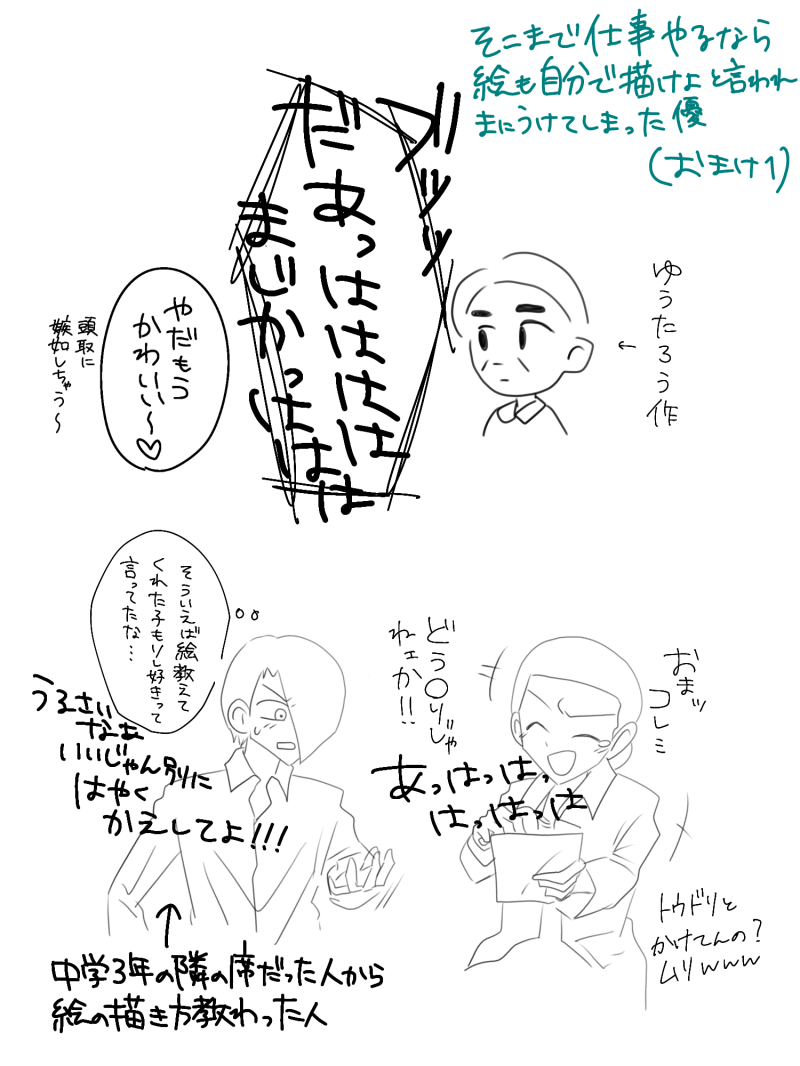 そこまで仕事やるなら
絵も自分で描けよと言われ
まにうけてしまった優
(おまけ1)
ブッッ
だあっはははは
まじかっはははは
ゆうたろう作
やだもう
かわいい〜♡
頭取に
嫉妬しちゃう〜
そういえば絵教えて
くれた子もりぃし好きって
言ってたな…
うるさい
なぁ
いいじゃん別に
はやく
かえしてよ!!!
おまッ
コレミ
どう〇りじゃ
ねェか!!
あっはっはっ
はっはっは
トウドリと
かけてんの?
ムリwww
中学3年の隣の席だった人から
絵の描き方教わった人